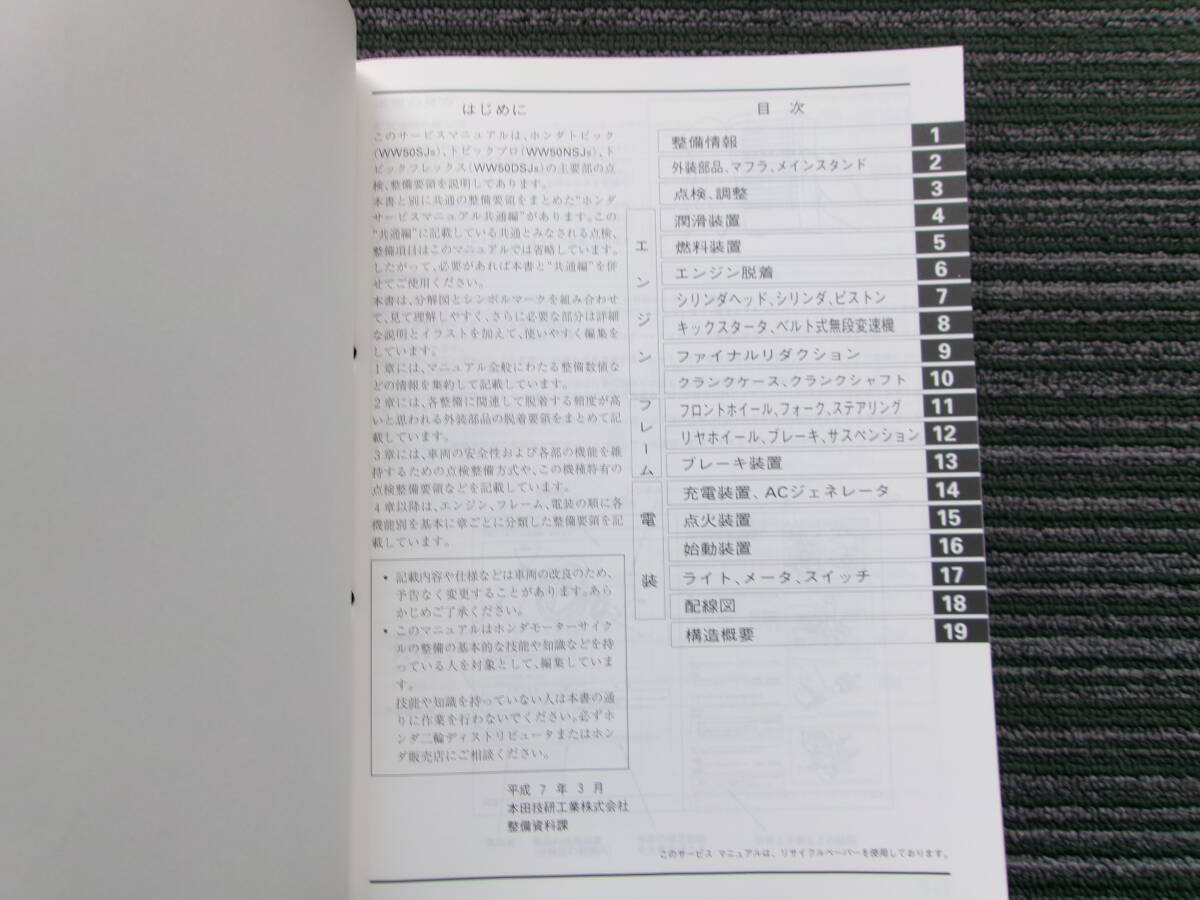 はじめに
このサービスマニュアルは、ホンダトピック
(WW50SJS)、トピックプロ(WW50NSJS)、ト
ピックフレックス(WW50DSJS)の主要部の点
検、整備要領を説明してあります。
本書と別に共通の整備要領をまとめた“ホンダ
サービスマニュアル共通編”があります。この
“共通編”に記載している共通とみなされる点検、
整備項目はこのマニュアルでは省略しています。
したがって、必要があれば本書と“共通編”を併
せてご使用ください。
本書は、分解図とシンボルマークを組み合わせ
て、見て理解しやすく、さらに必要な部分は詳細
な説明とイラストを加えて、使いやすく編集を
しています。
1章には、マニュアル全般にわたる整備数値な
どの情報を集約して記載しています。
2章には、各整備に関連して脱着する頻度が高
いと思われる外装部品の脱着要領をまとめて記
載しています。
3章には、車両の安全性および各部の機能を維
持するための点検整備方式や、この機種特有の
点検整備要領などを記載しています。
4章以降は、エンジン、フレーム、電装の順に各
機能別を基本に章ごとに分類した整備要領を記
載しています。
• 記載内容や仕様などは車両の改良のため、
予告なく変更することがあります。あら
かじめご了承ください。
• このマニュアルはホンダモーターサイク
ルの整備の基本的な技能や知識などを持
っている人を対象として、編集していま
す。
技能や知識を持っていない人は本書の通
りに作業を行わないでください。必ずホ
ンダ二輪ディストリビュータまたはホン
ダ販売店にご相談ください。
平成 7 年 3 月
本田技研工業株式会社
整備資料課
目 次
整備情報 1
外装部品、マフラ、メインスタンド 2
点検、調整 3
エンジン
潤滑装置 4
燃料装置 5
エンジン脱着 6
シリンダヘッド、シリンダ、ピストン 7
キックスタータ、ベルト式無段変速機 8
ファイナルリダクション 9
クランクケース、クランクシャフト 10
フレーム
フロントホイール、フォーク、ステアリング 11
リヤホイール、ブレーキ、サスペンション 12
ブレーキ装置 13
電装
充電装置、ACジェネレータ 14
点火装置 15
始動装置 16
ライト、メータ、スイッチ 17
配線図 18
構造概要 19
このサービス マニュアルは、リサイクルペーパーを使用しております。